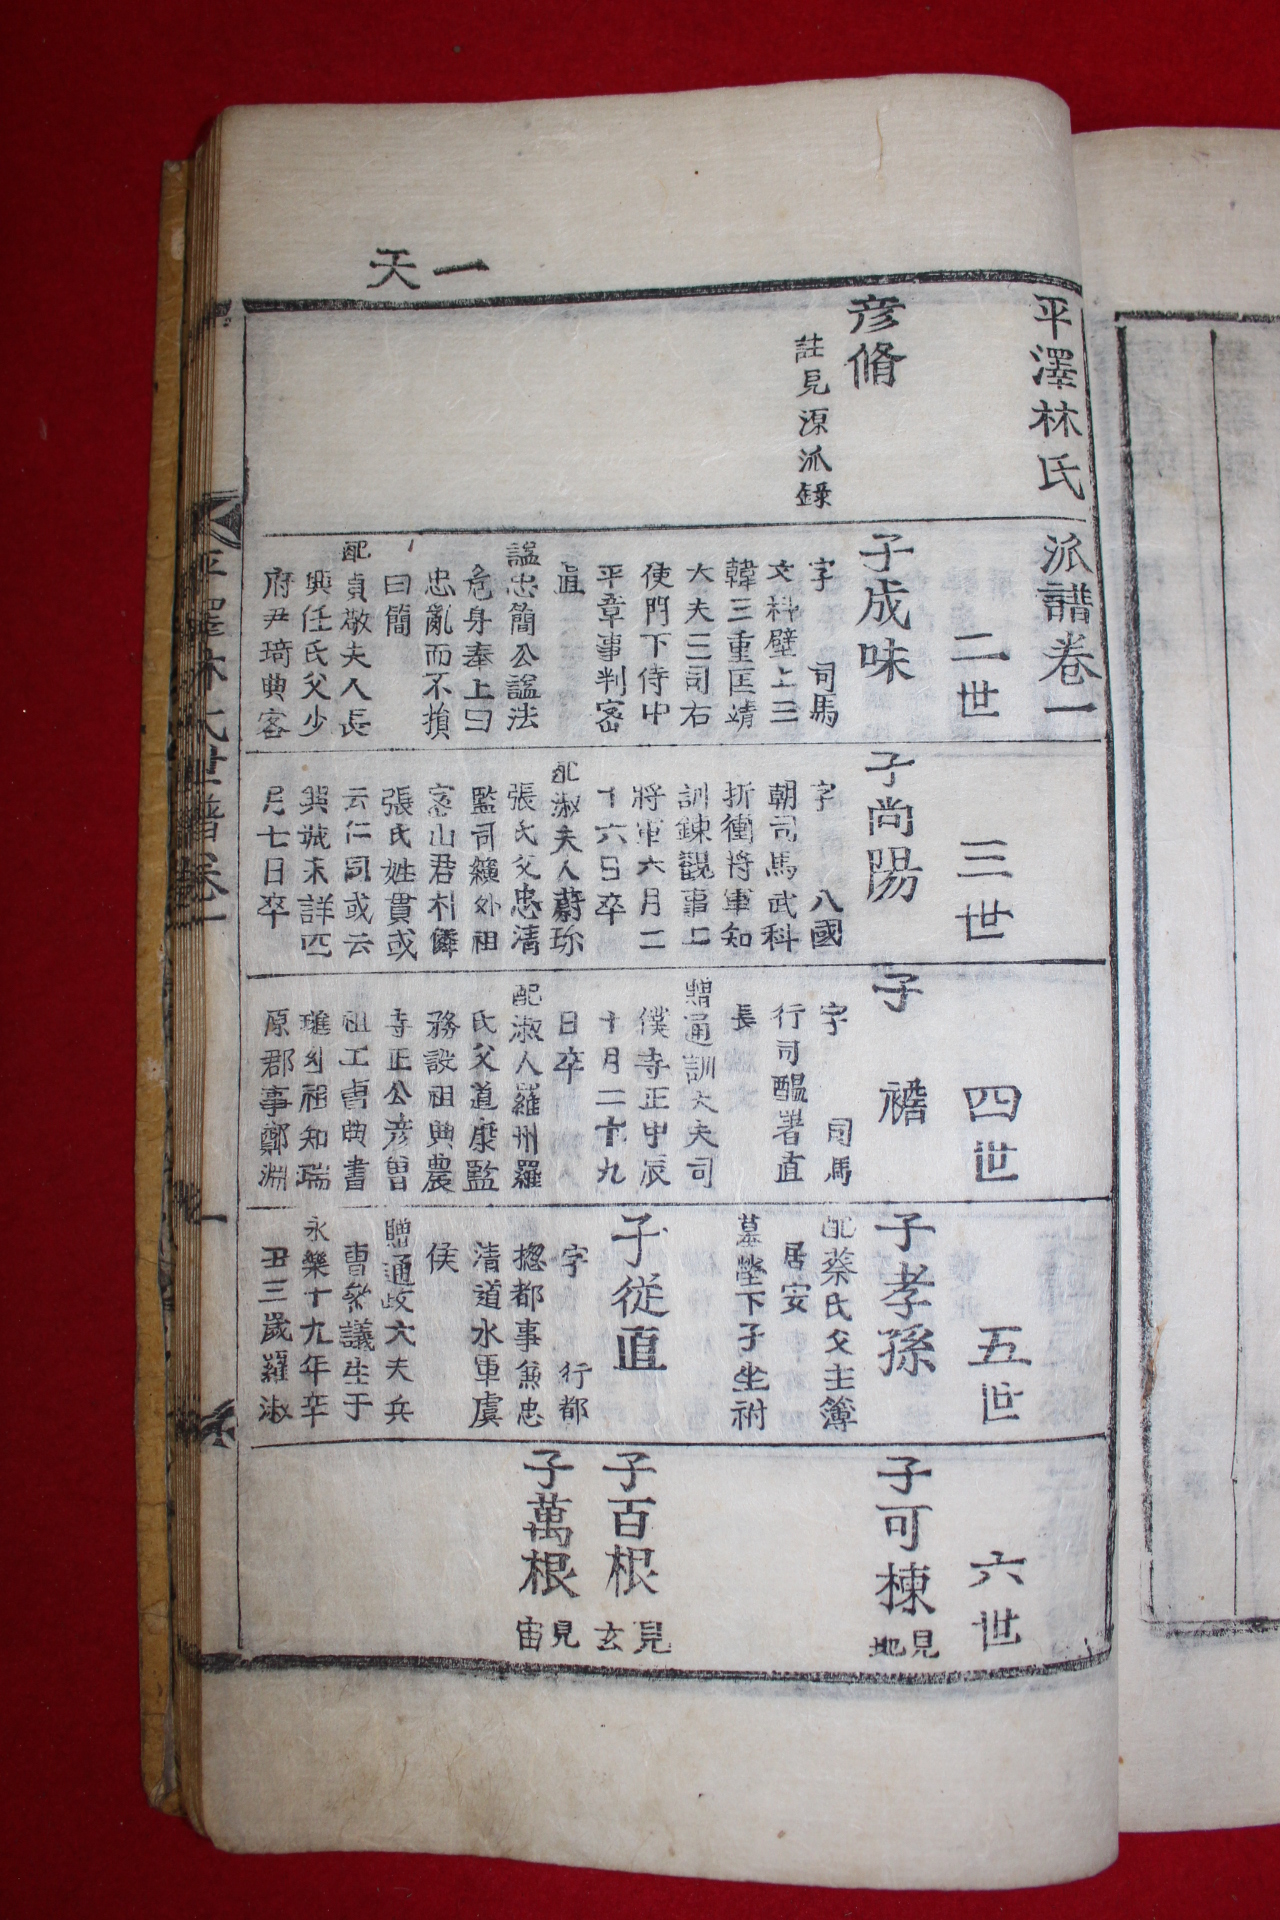 一天
平澤林氏派譜卷一
彦脩
註見源派錄
二世
子成味
字 司馬
文科壁上三
韓三重匡靖
大夫三司右
使門下侍中
平章事判密
直
諡忠簡公諡法
危身奉上曰
忠亂而不損
曰簡
配貞敬夫人長
興任氏父少
府尹琦典客
三世
子尚陽
字 八國
朝司馬武科
折衝將軍知
訓鍊觀事上
將軍六月二
十六日卒
配淑夫人蔚珍
張氏父忠清
監司籟外祖
密山君朴儐
張氏姓貫或
云仁同或云
未詳四
月七日卒
四世
子 襜
字 司馬
行司醞署直
長
贈通訓大夫司
僕寺正甲辰
十月二十九
日卒
配淑人羅州羅
氏父道康監
務設祖典農
寺正公彦曾
祖工曹典書
璡外祖知瑞
原郡事鄭淵
五世
子孝孫
配蔡氏父主簿
居安
墓塋下子坐祔
子從直
字 行都
摠都事兼忠
清道水軍虞
侯
贈通政大夫兵
曹參議生于
永樂十九年辛
丑三歲羅淑
六世
子可棟 見地
子百根 見玄
子萬根 見宙
平澤林氏世譜卷一
一